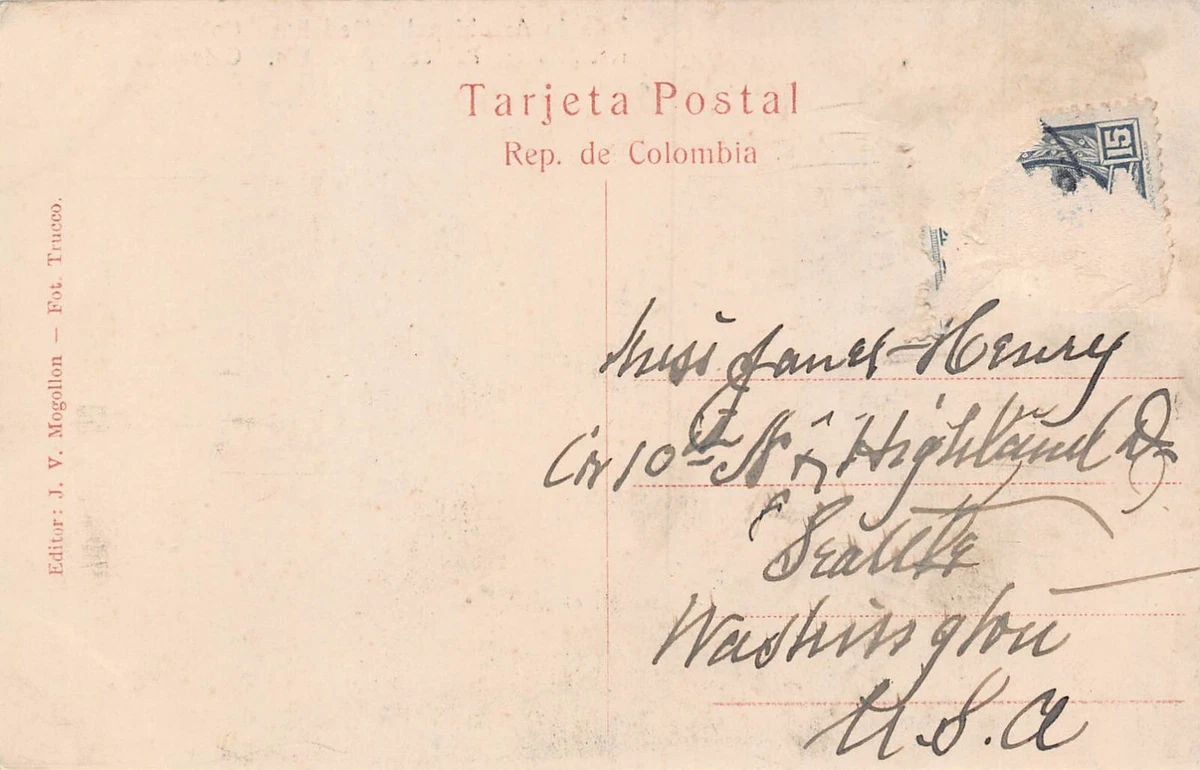 Tarjeta Postal
Rep. de Colombia
15
Editor: J. V. Mogollon — Fot. Trucco.
Miss Janet Henry
Cor 10th N & Highland Dr
Seattle
Washington
U.S.A